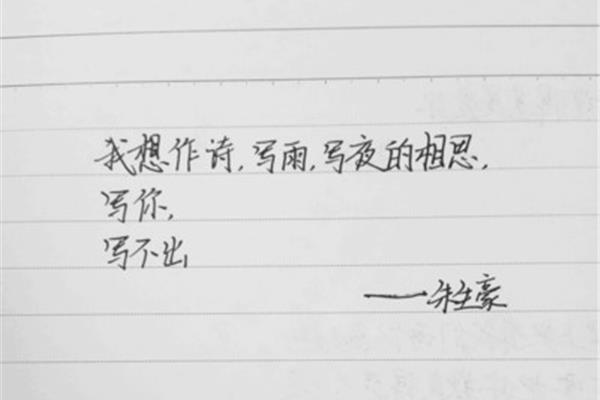 我想作诗,写雨,写夜的相思,
写你,
写不出
——朱生豪